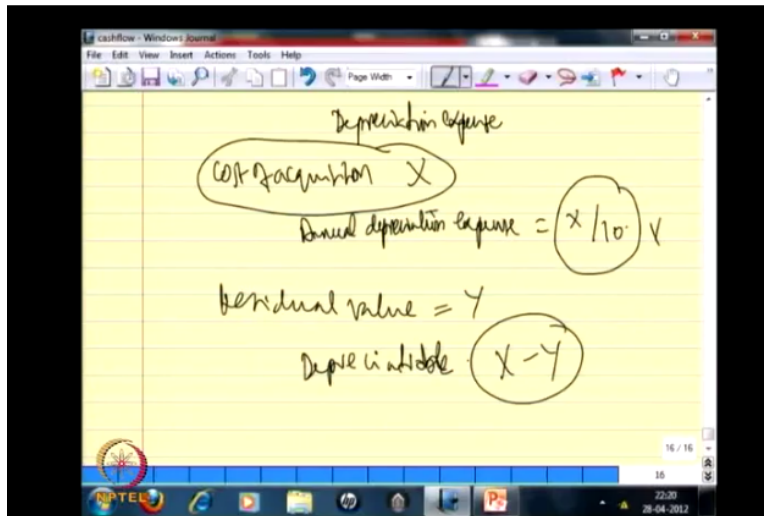 cashflow - Windows Journal
File Edit View Insert Actions Tools Help
Page Width
Depreciation expense
Cost of acquisition X
Annual depreciation expense = X/10
Residual value = Y
Depreciatable X-Y
16 / 16
16
NPTEL
22:20
28-04-2012